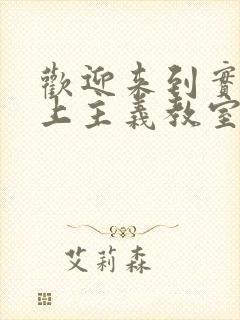 歡迎来到實
上主義教室
艾莉森